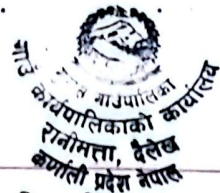 गाउँपालिका
गाउँ कार्यपालिकाको कार्यालय
रानीमत्ता, दैलेख
कर्णाली प्रदेश नेपाल